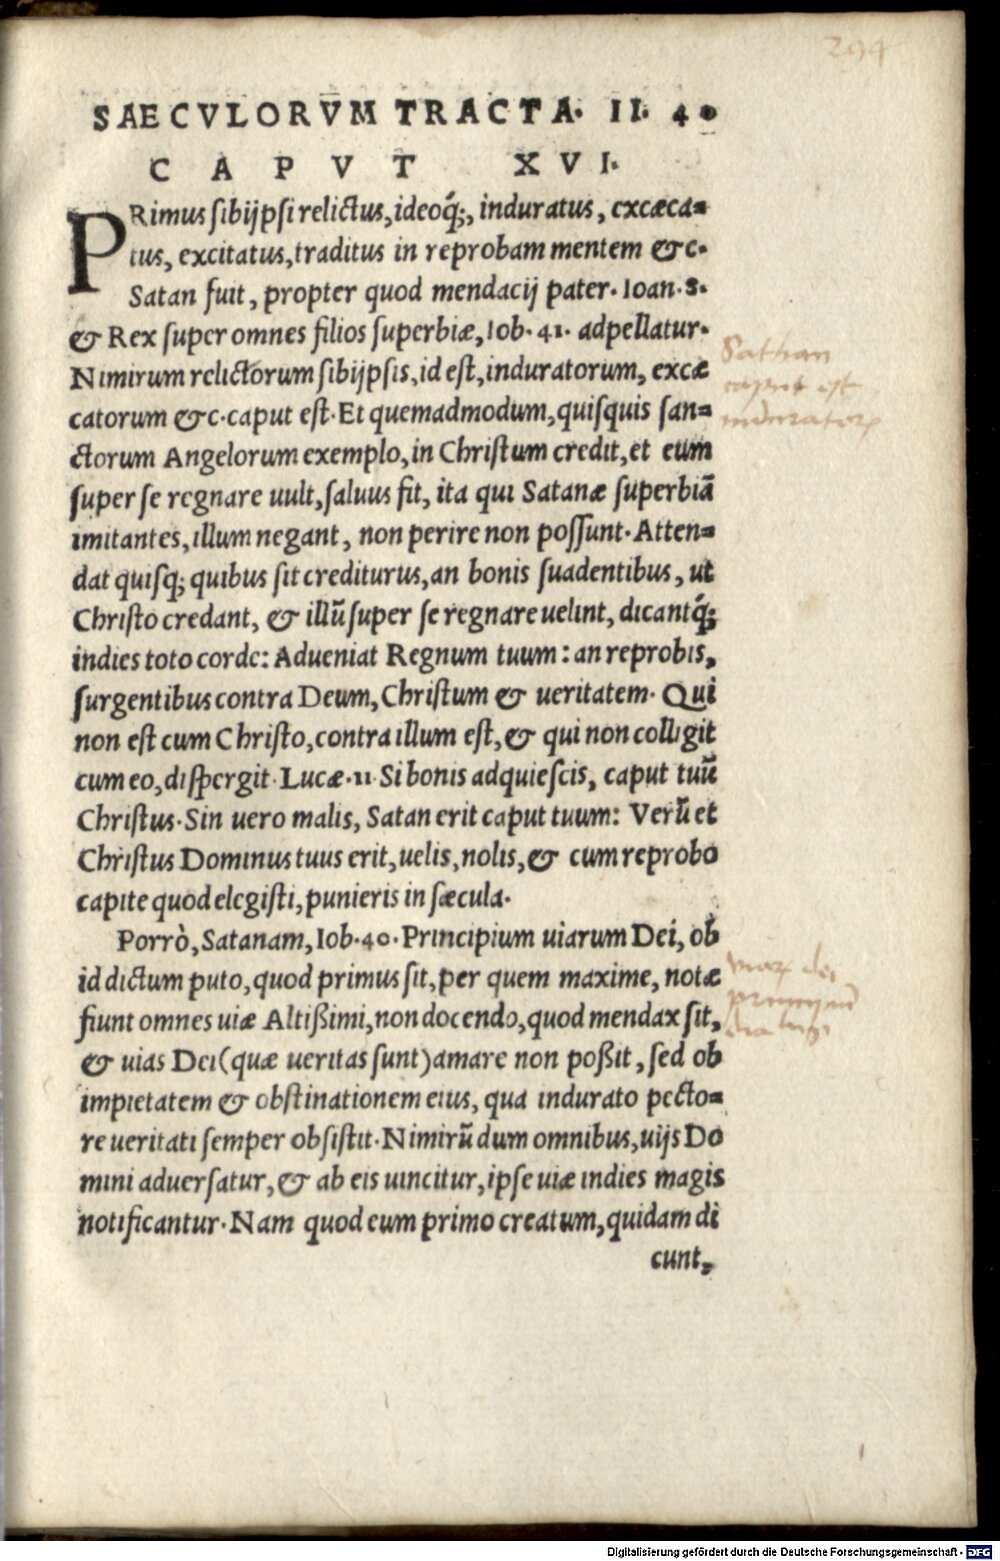 294
SAECVLORVM TRACTA. II. 40
CAPVT XVI.
PRimus sibijpsi relictus, ideoq́;, induratus, excæca=
tus, excitatus, traditus in reprobam mentem &c.
Satan fuit, propter quod mendacij pater. Ioan. 8.
& Rex super omnes filios superbiæ, Iob. 41. adpellatur.
Nimirum relictorum sibijpsis, id est, induratorum, excæ
catorum &c. caput est. Et quemadmodum, quisquis san=
ctorum Angelorum exemplo, in Christum credit, et eum
super se regnare uult, saluus fit, ita qui Satanæ superbiā
imitantes, illum negant, non perire non possunt. Atten=
dat quisq; quibus sit crediturus, an bonis suadentibus, ut
Christo credant, & illū super se regnare uelint, dicantq́;
indies toto corde: Adueniat Regnum tuum: an reprobis,
surgentibus contra Deum, Christum & ueritatem. Qui
non est cum Christo, contra illum est, & qui non colligit
cum eo, dispergit. Lucæ. 11 Si bonis adquiescis, caput tuū
Christus. Sin uero malis, Satan erit caput tuum: Verū et
Christus Dominus tuus erit, uelis, nolis, & cum reprobo
capite quod elegisti, punieris in sæcula.
Porrò, Satanam, Iob. 40. Principium uiarum Dei, ob
id dictum puto, quod primus sit, per quem maxime, notæ
fiunt omnes uiæ Altißimi, non docendo, quod mendax sit,
& uias Dei (quæ ueritas sunt) amare non poßit, sed ob
impietatem & obstinationem eius, qua indurato pecto=
re ueritati semper obsistit. Nimirū dum omnibus, uijs Do
mini aduersatur, & ab eis uincitur, ipse uiæ indies magis
notificantur. Nam quod eum primo creatum, quidam di
cunt,
Sathan
caput est
induratorꝝ
viarꝝ dei
principiū
Digitalisierung gefördert durch die Deutsche Forschungsgemeinschaft - DFG